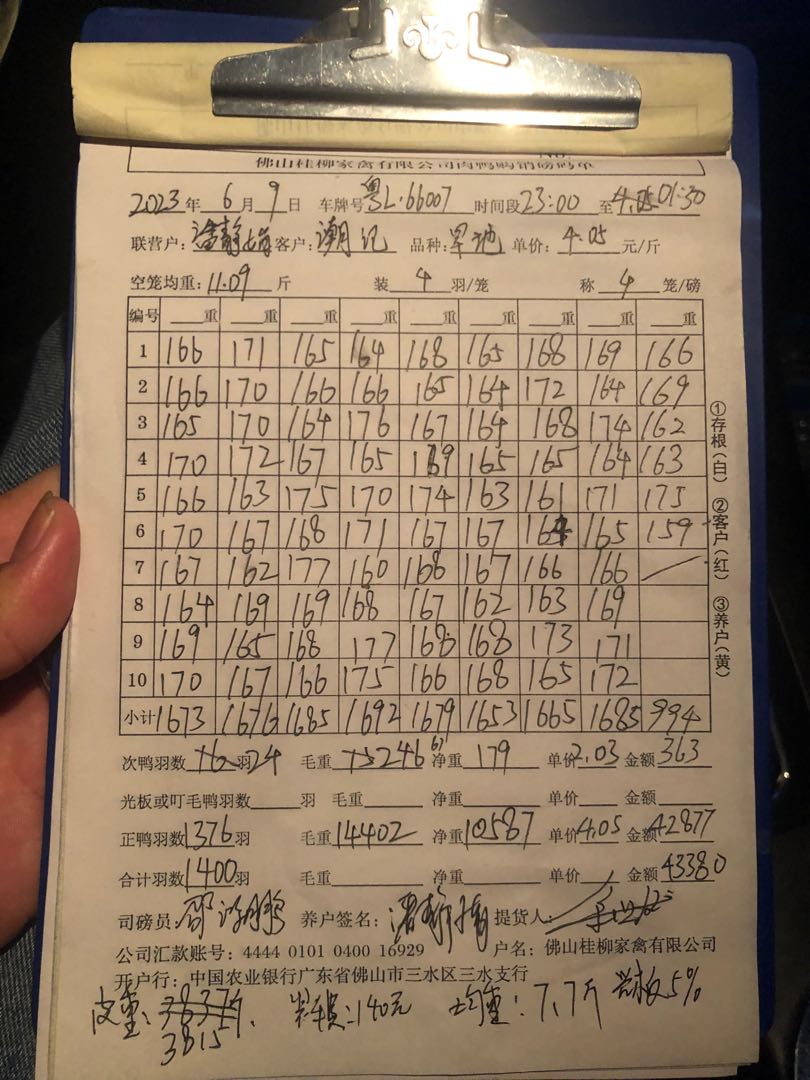 佛山桂柳家禽有限公司肉鸭购销磅码单
2023年 6月 9日 车牌号粤L·66007 时间段23:00 至01:30
联营户: 客户:潮记 品种:旱地 单价:4.05 元/斤
空笼均重:11.09斤 装4羽/笼 称4笼/磅
编号 重 重 重 重 重 重 重 重 重
1 166 171 165 164 168 165 168 169 166
2 166 170 166 166 165 164 172 164 169
3 165 170 164 176 167 164 168 174 162
4 170 172 167 165 169 165 165 164 163
5 166 163 175 170 174 163 161 171 175
6 170 167 168 171 167 167 164 165 159
7 167 162 177 160 168 167 166 166
8 164 169 169 168 167 162 163 169
9 169 165 168 177 168 168 173 171
10 170 167 166 175 166 168 165 172
小计 1673 1676 1685 1692 1679 1653 1665 1685 994
次鸭羽数 24 毛重 246 净重 179 单价2.03 金额 363
光板或叮毛鸭羽数 羽 毛重 净重 单价 金额
正鸭羽数1376羽 毛重14402 净重10587 单价4.05 金额42877
合计羽数1400羽 毛重 净重 单价 金额43380
司磅员: 养户签名: 提货人:
公司汇款账号: 4444 0101 0400 16929 户名: 佛山桂柳家禽有限公司
开户行: 中国农业银行广东省佛山市三水区三水支行
皮重: 装车费:140元 均重:7.7斤 光板5%
3815
①存根(白) ②客户(红) ③养户(黄)